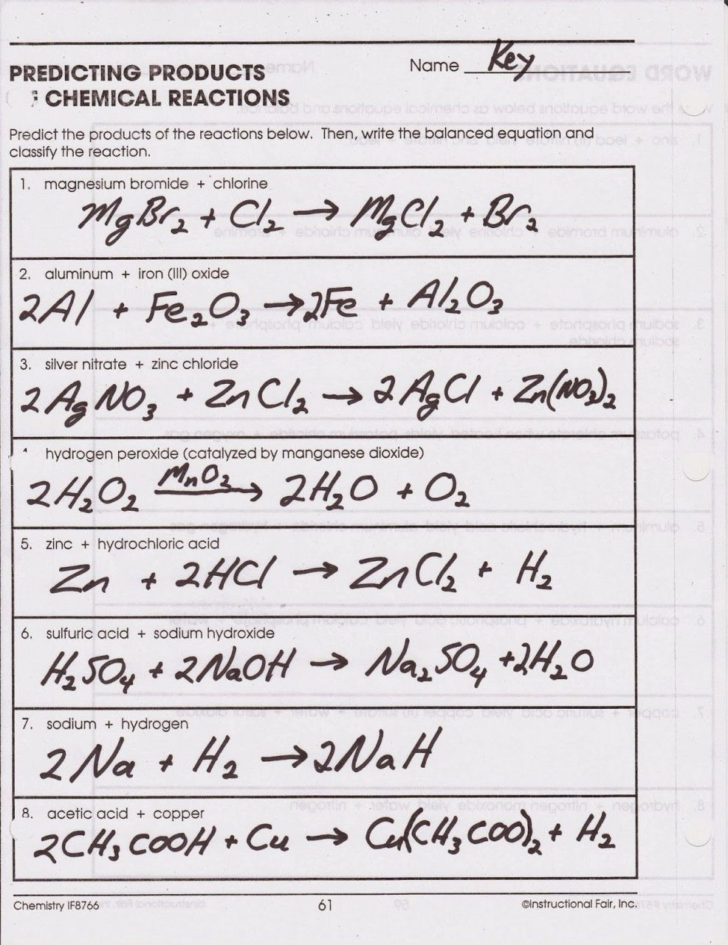 Name Key
PREDICTING PRODUCTS
CHEMICAL REACTIONS
Predict the products of the reactions below. Then, write the balanced equation and
classify the reaction.
1. magnesium bromide + chlorine
MgBr₂ + Cl₂ → MgCl₂ + Br₂
2. aluminum + iron (III) oxide
2Al + Fe₂O₃ → 2Fe + Al₂O₃
3. silver nitrate + zinc chloride
2AgNO₃ + ZnCl₂ → 2AgCl + Zn(NO₃)₂
hydrogen peroxide (catalyzed by manganese dioxide)
MnO₂
2H₂O₂ → 2H₂O + O₂
5. zinc + hydrochloric acid
Zn + 2HCl → ZnCl₂ + H₂
6. sulfuric acid + sodium hydroxide
H₂SO₄ + 2NaOH → Na₂SO₄ + 2H₂O
7. sodium + hydrogen
2Na + H₂ → 2NaH
8. acetic acid + copper
2CH₃COOH + Cu → Cu(CH₃COO)₂ + H₂
Chemistry IF8766 61 ©Instructional Fair, Inc.